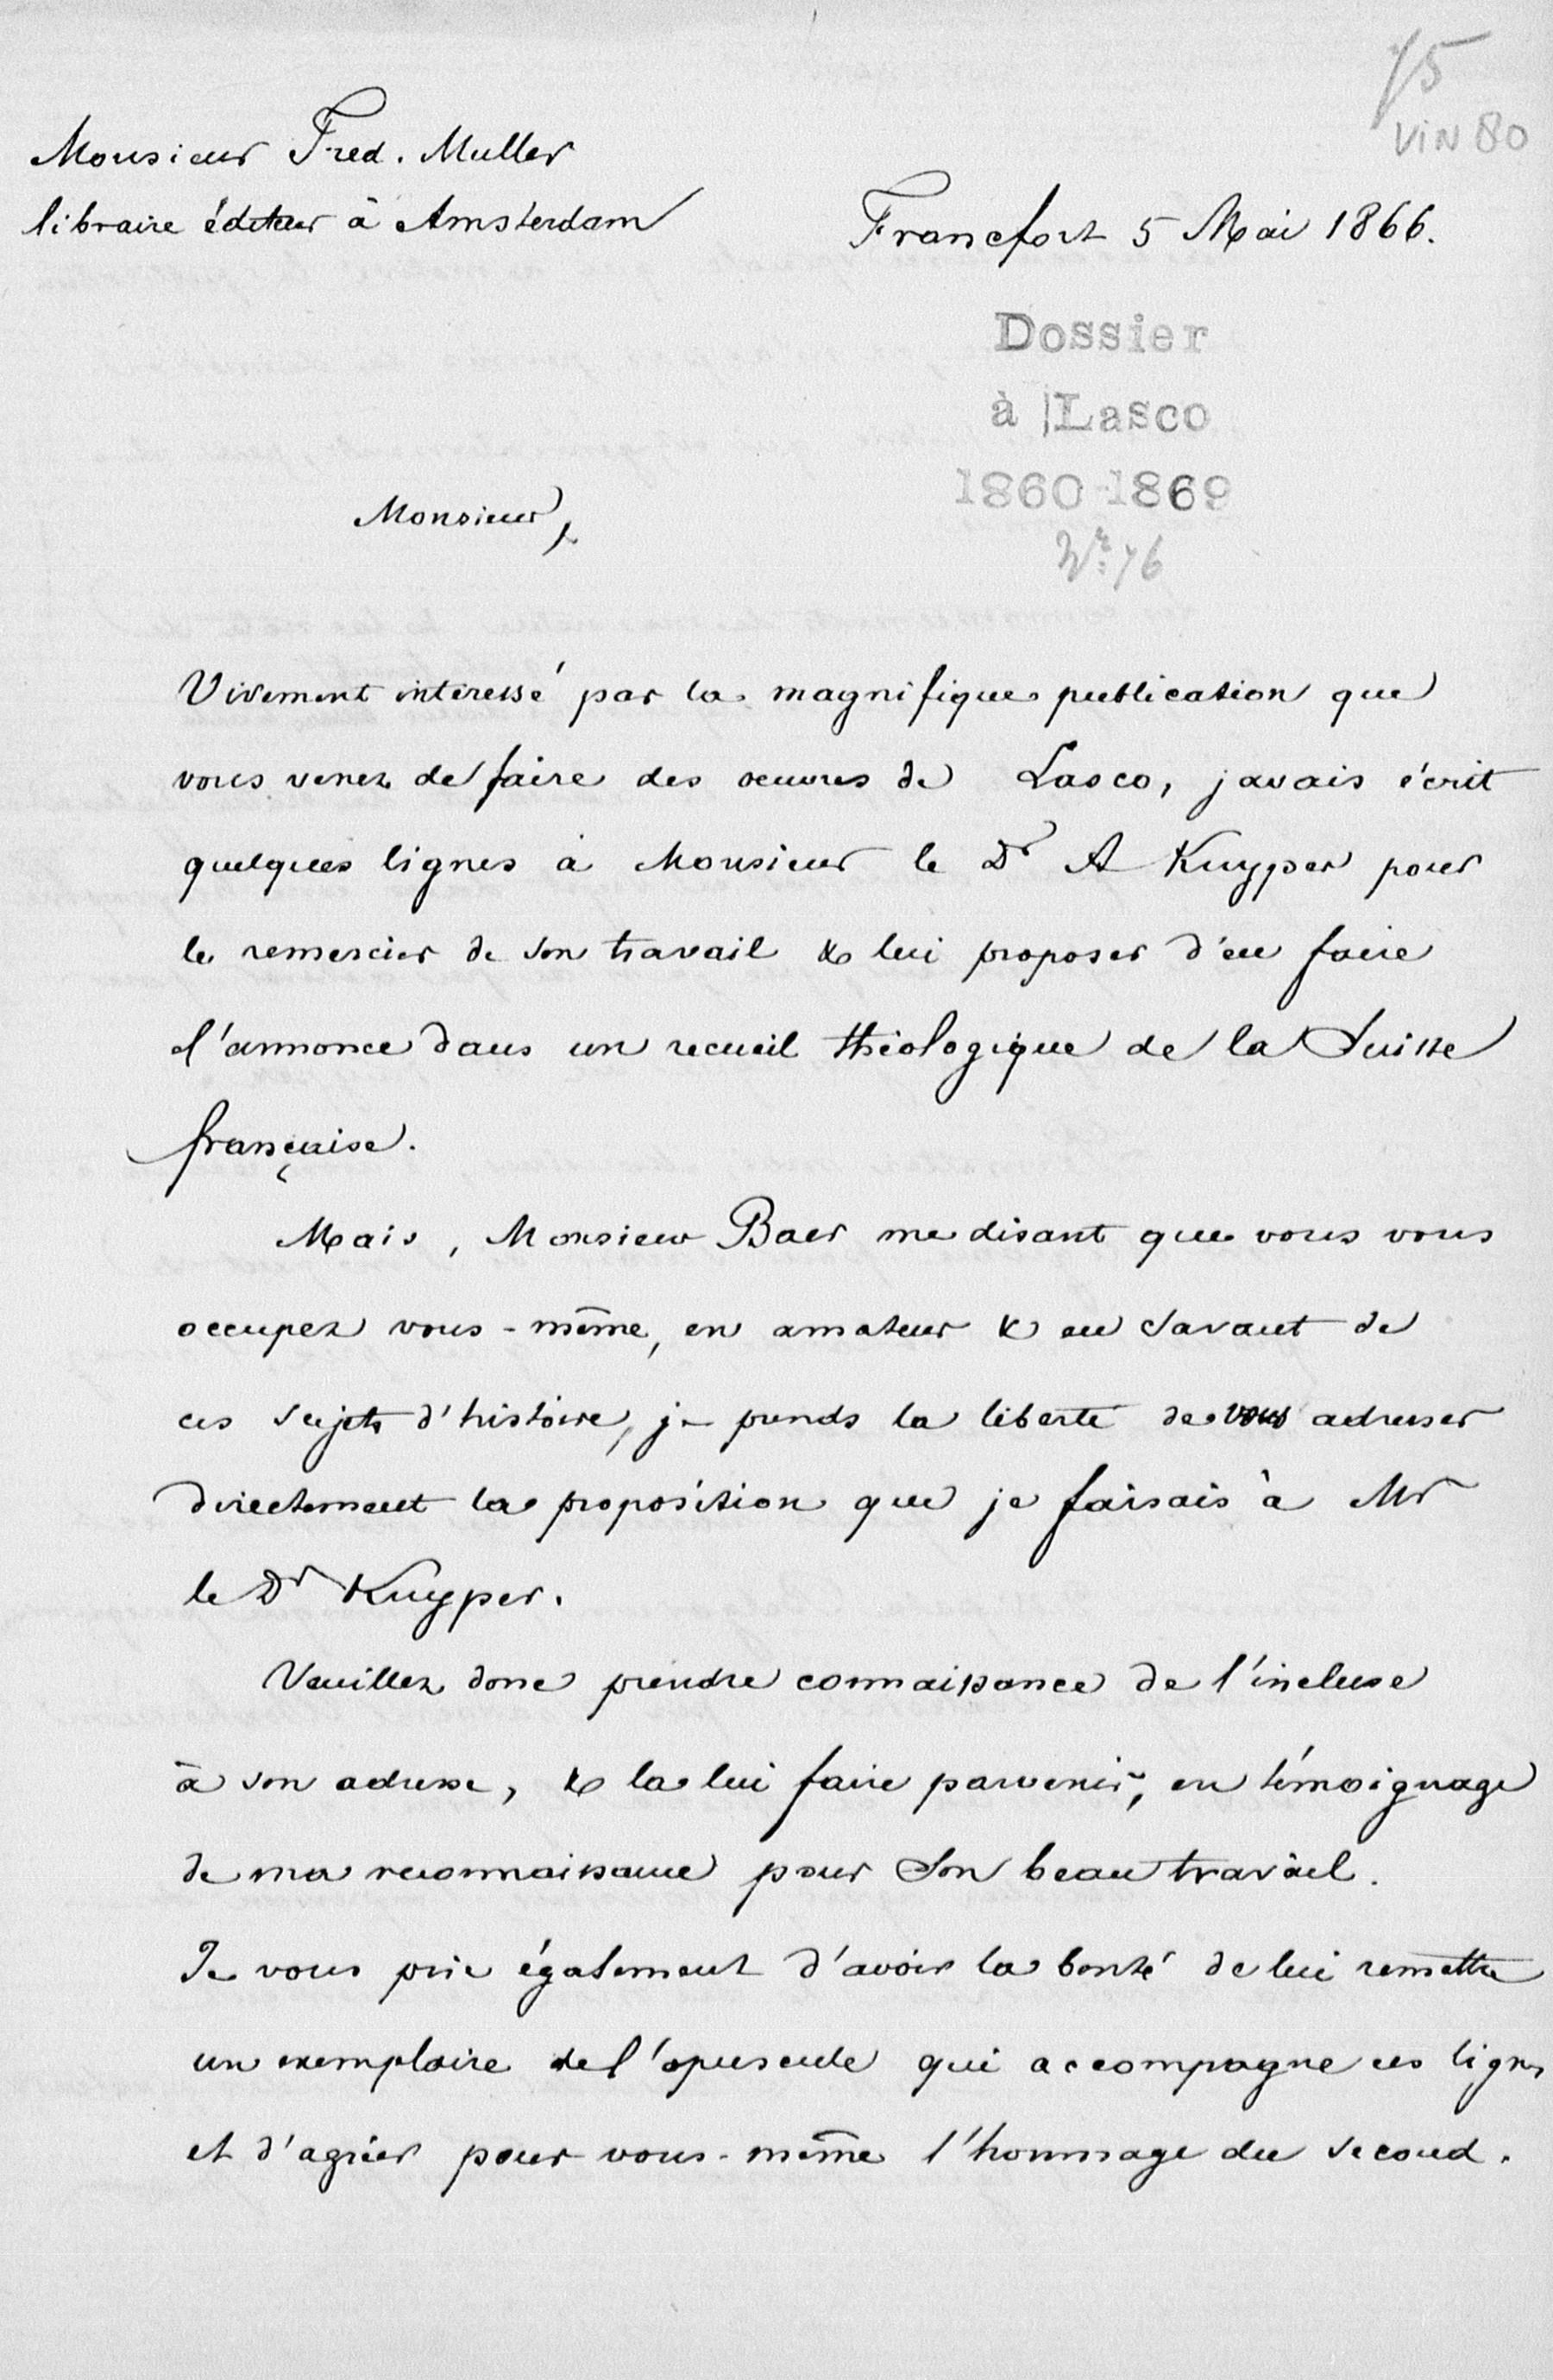 75
VIN 80
Monsieur Fred. Muller
libraire éditeur à Amsterdam
Francfort 5 Mai 1866.
Dossier
à Lasco
1860-1869
Nr. 76
Monsieur,
Vivement intéressé par la magnifique publication que
vous venez de faire des oeuvres de Lasco, javais écrit
quelques lignes à Monsieur le Dr A Kuyper pour
le remercier de son travail & lui proposer d'en faire
l'annonce dans un recueil théologique de la Suisse
française.
Mais, Monsieur Baer me disant que vous vous
occupez vous-même, en amateur & en savant de
ces sujets d'histoire, je prends la liberté de vous adresser
directement la proposition que je faisais à Mr
le Dr Kuyper.
Veuillez donc prendre connaissance de l'incluse
à son adresse, & la lui faire parvenir, en témoignage
de ma reconnaissance pour son beau travail.
Je vous prie également d'avoir la bonté de lui remettre
un exemplaire de l'opuscule qui accompagne ces lignes
et d'agréer pour vous-même l'hommage du second.